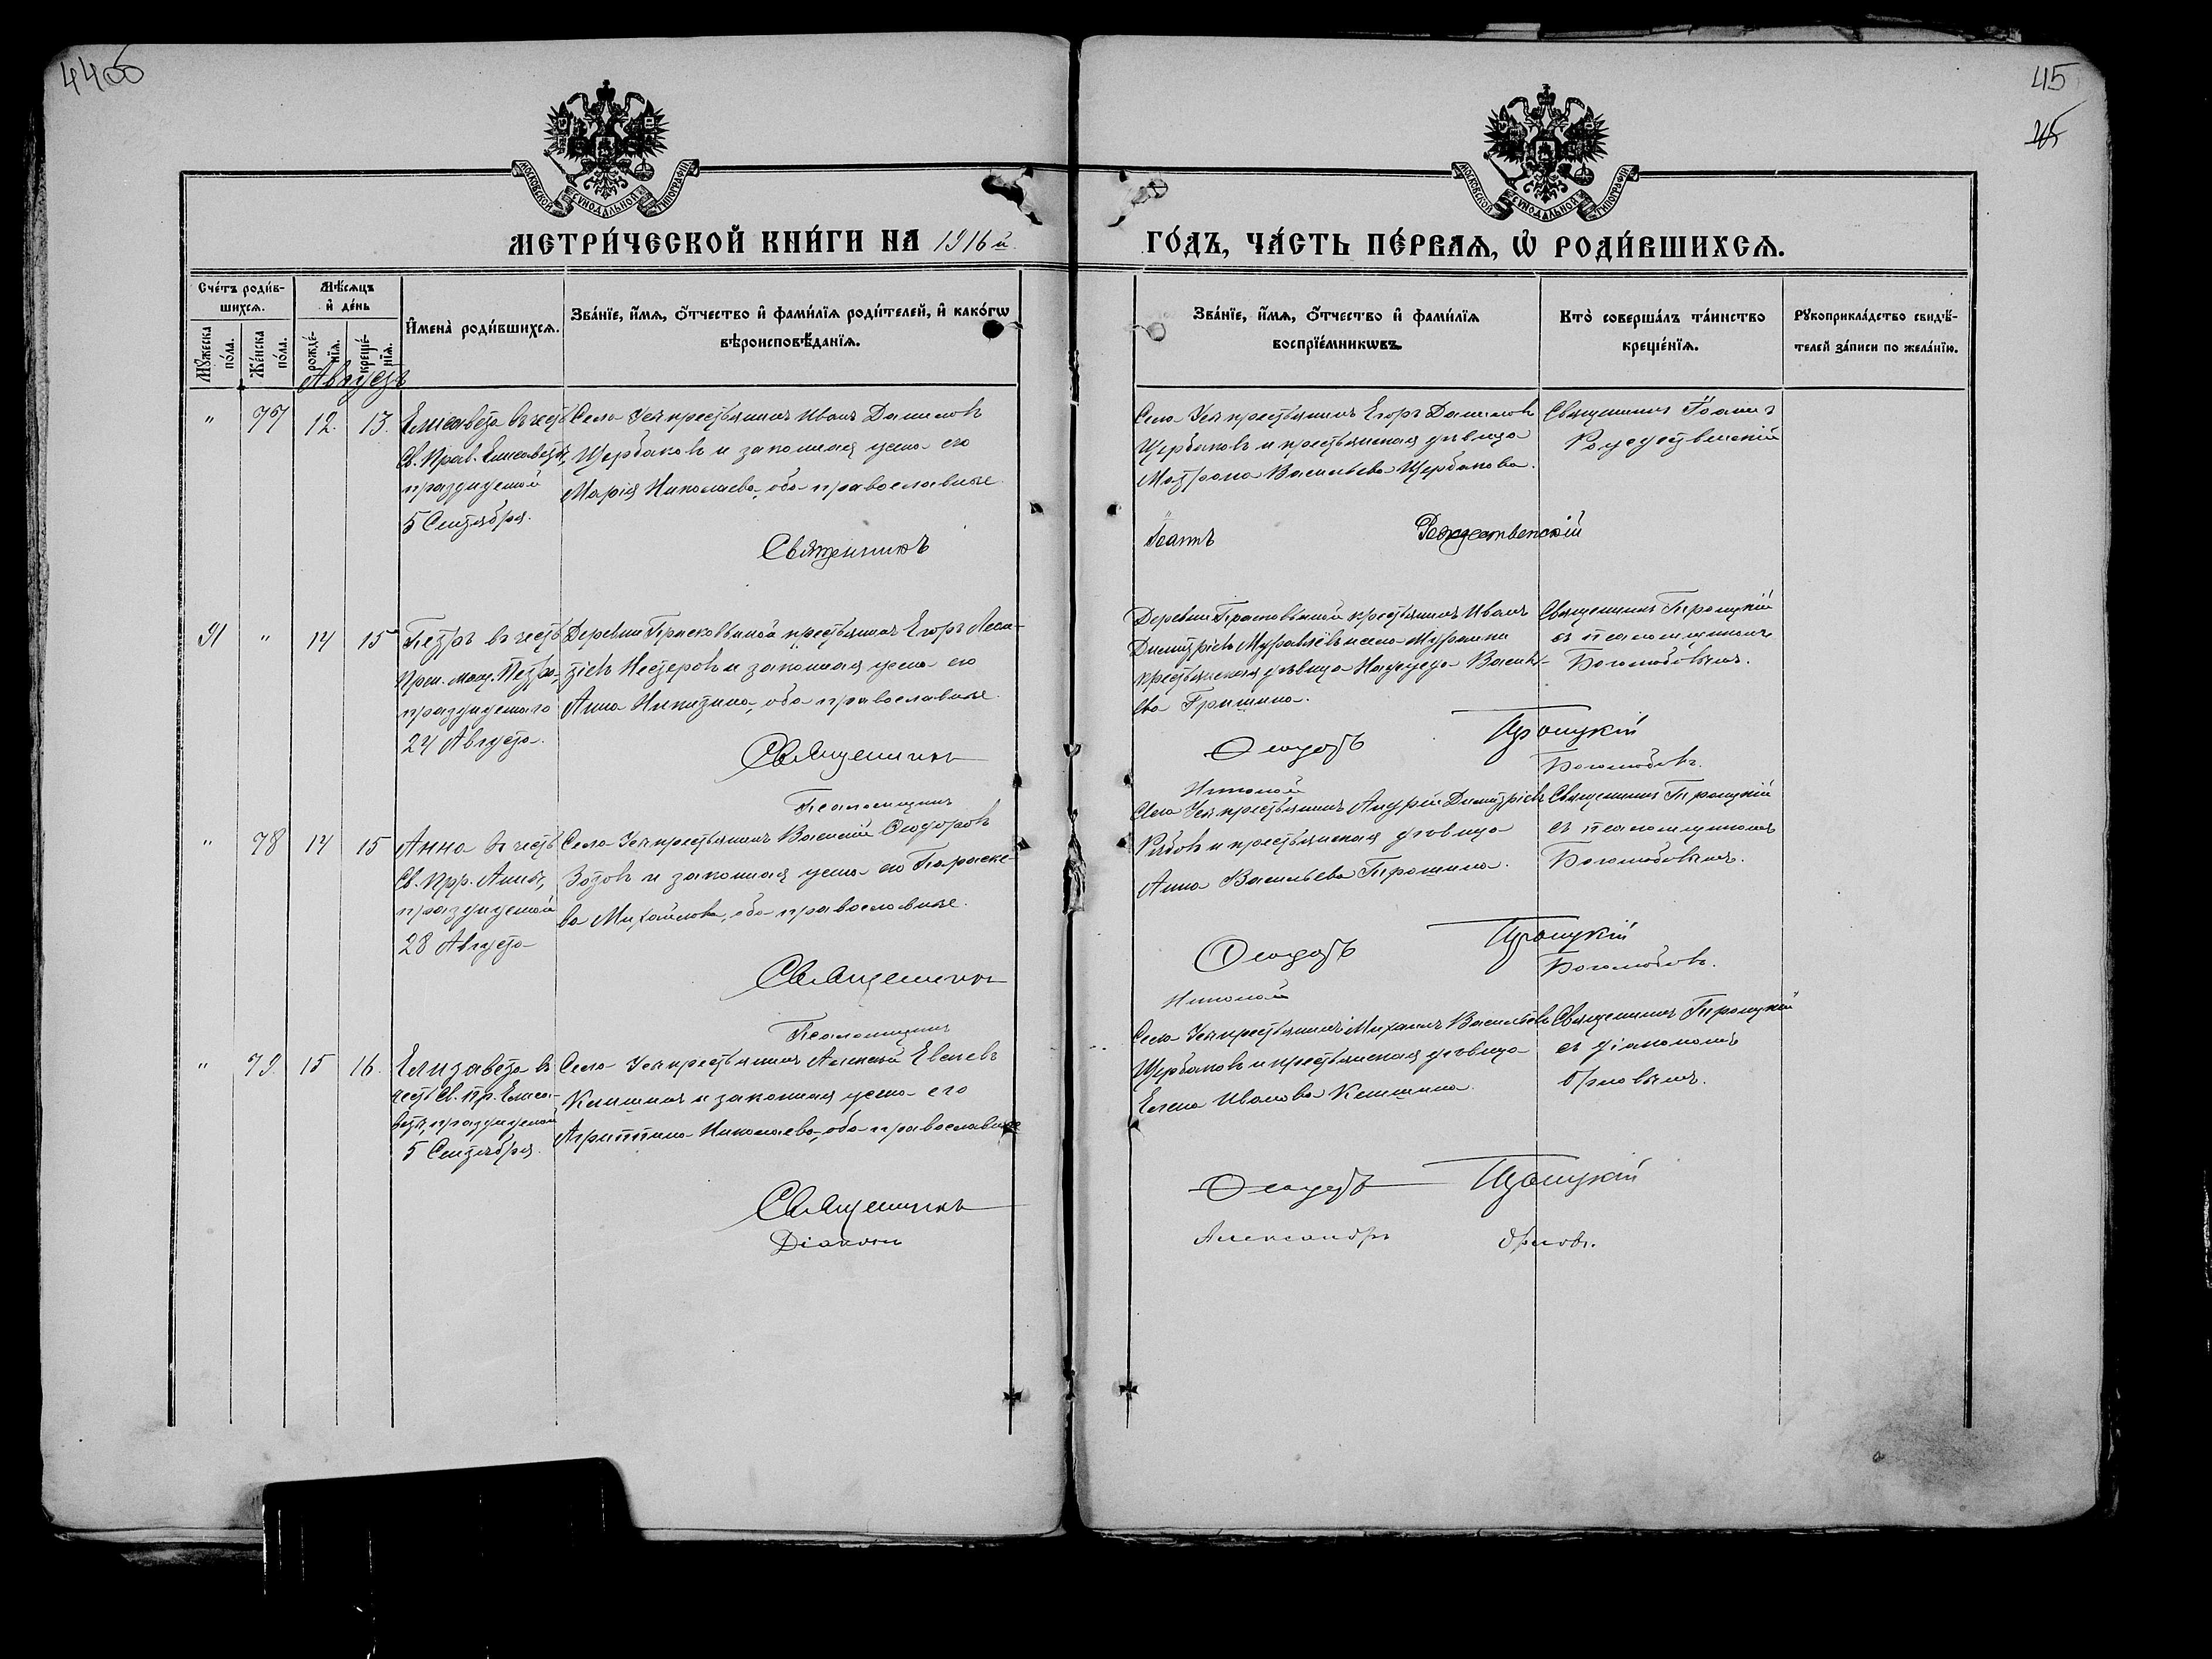 44об
45
45
МОСКОВСКОЙ СѴНОДАЛЬНОЙ ТИПОГРАФІИ
МОСКОВСКОЙ СѴНОДАЛЬНОЙ ТИПОГРАФІИ
МЕТРИ́ЧЕСКОЙ КНИ́ГИ НА 1916й.
ГО́ДЪ, ЧА́СТЬ ПЕ́РВАЯ, Ѡ РОДИ́ВШИХСЯ.
Сче́тъ роди́вшихся.
Му́жеска по́ла.
Же́нска по́ла.
Мѣ́сяцъ и де́нь
рожде́нїя.
креще́нїя.
И҆мена̀ роди́вшихся.
Зва́нїе, и҆́мя, ѻ҆́тчество и҆ фами́лїя роди́телей, и҆ како́гѡ
вѣроисповѣ́данїя.
Зва́нїе, и҆́мя, ѻ҆́тчество и҆ фами́лїя
воспрїе́мникѡвъ.
Кто̀ соверша́лъ та́инство
креще́нїя.
Рꙋкоприкла́дство свидѣ́-
телей за́писи по жела́нїю.
Августъ
" 77 12. 13.
Елисавета въ честь
Св. Прав. Елисаветы,
празднуемой
5 Сентября.
Села Усп крестьянинъ Иванъ Даниловъ
Щербаковъ и законная жена его
Марія Николаева, оба православные.
Села Усп крестьянинъ Егоръ Даниловъ
Щербаковъ и крестьянская дѣвица
Матрона Васильева Щербакова.
Священникъ Іоаннъ
Рождественскій
Священникъ
Іоаннъ Рождественскій
91 " 14 15
Петръ въ честь
Празднуемаго
24 Августа.
Деревни Присковьиной крестьянинъ Егоръ
Нестеровъ и законная жена его
Анна Никитина, оба православные.
Деревни крестьянинъ Иванъ
Димитріевъ Муравлёвъ и села
крестьянская дѣвица Надежда Василь-
ева Гришина.
Священникъ Троицкій
съ псаломщикомъ
Боголюбовымъ.
Священникъ Ѳеодоръ Троицкій
Псаломщикъ Николай Боголюбовъ.
" 78 14 15
Анна въ честь
Св. Прр. Анны,
празднуемой
28 Августа
Села Усп крестьянинъ Василій Ѳеодоровъ
Зотовъ и законная жена его Параске-
ва Михайлова, оба православные.
Села Усп крестьянинъ Андрей Димитріевъ
Рябовъ и крестьянская дѣвица
Анна Васильева Трошина.
Священникъ Троицкій
съ псаломщикомъ
Боголюбовымъ.
Священникъ Ѳеодоръ Троицкій
Псаломщикъ Николай Боголюбовъ.
" 79. 15 16.
Елизавета въ
честь Св. Пр. Елиса-
веты, празднуемой
5 Сентября.
Села Усп крестьянинъ Алексей Евсеевъ
Кишкинъ и законная жена его
Агриппина Николаева, оба православные
Села Усп крестьянинъ Михаилъ Васильевъ
Щербаковъ и крестьянская дѣвица
Елена Иванова
Священникъ Троицкій
съ діакономъ
Орловымъ.
Священникъ Ѳеодоръ Троицкій
Діаконъ Александръ Орловъ.